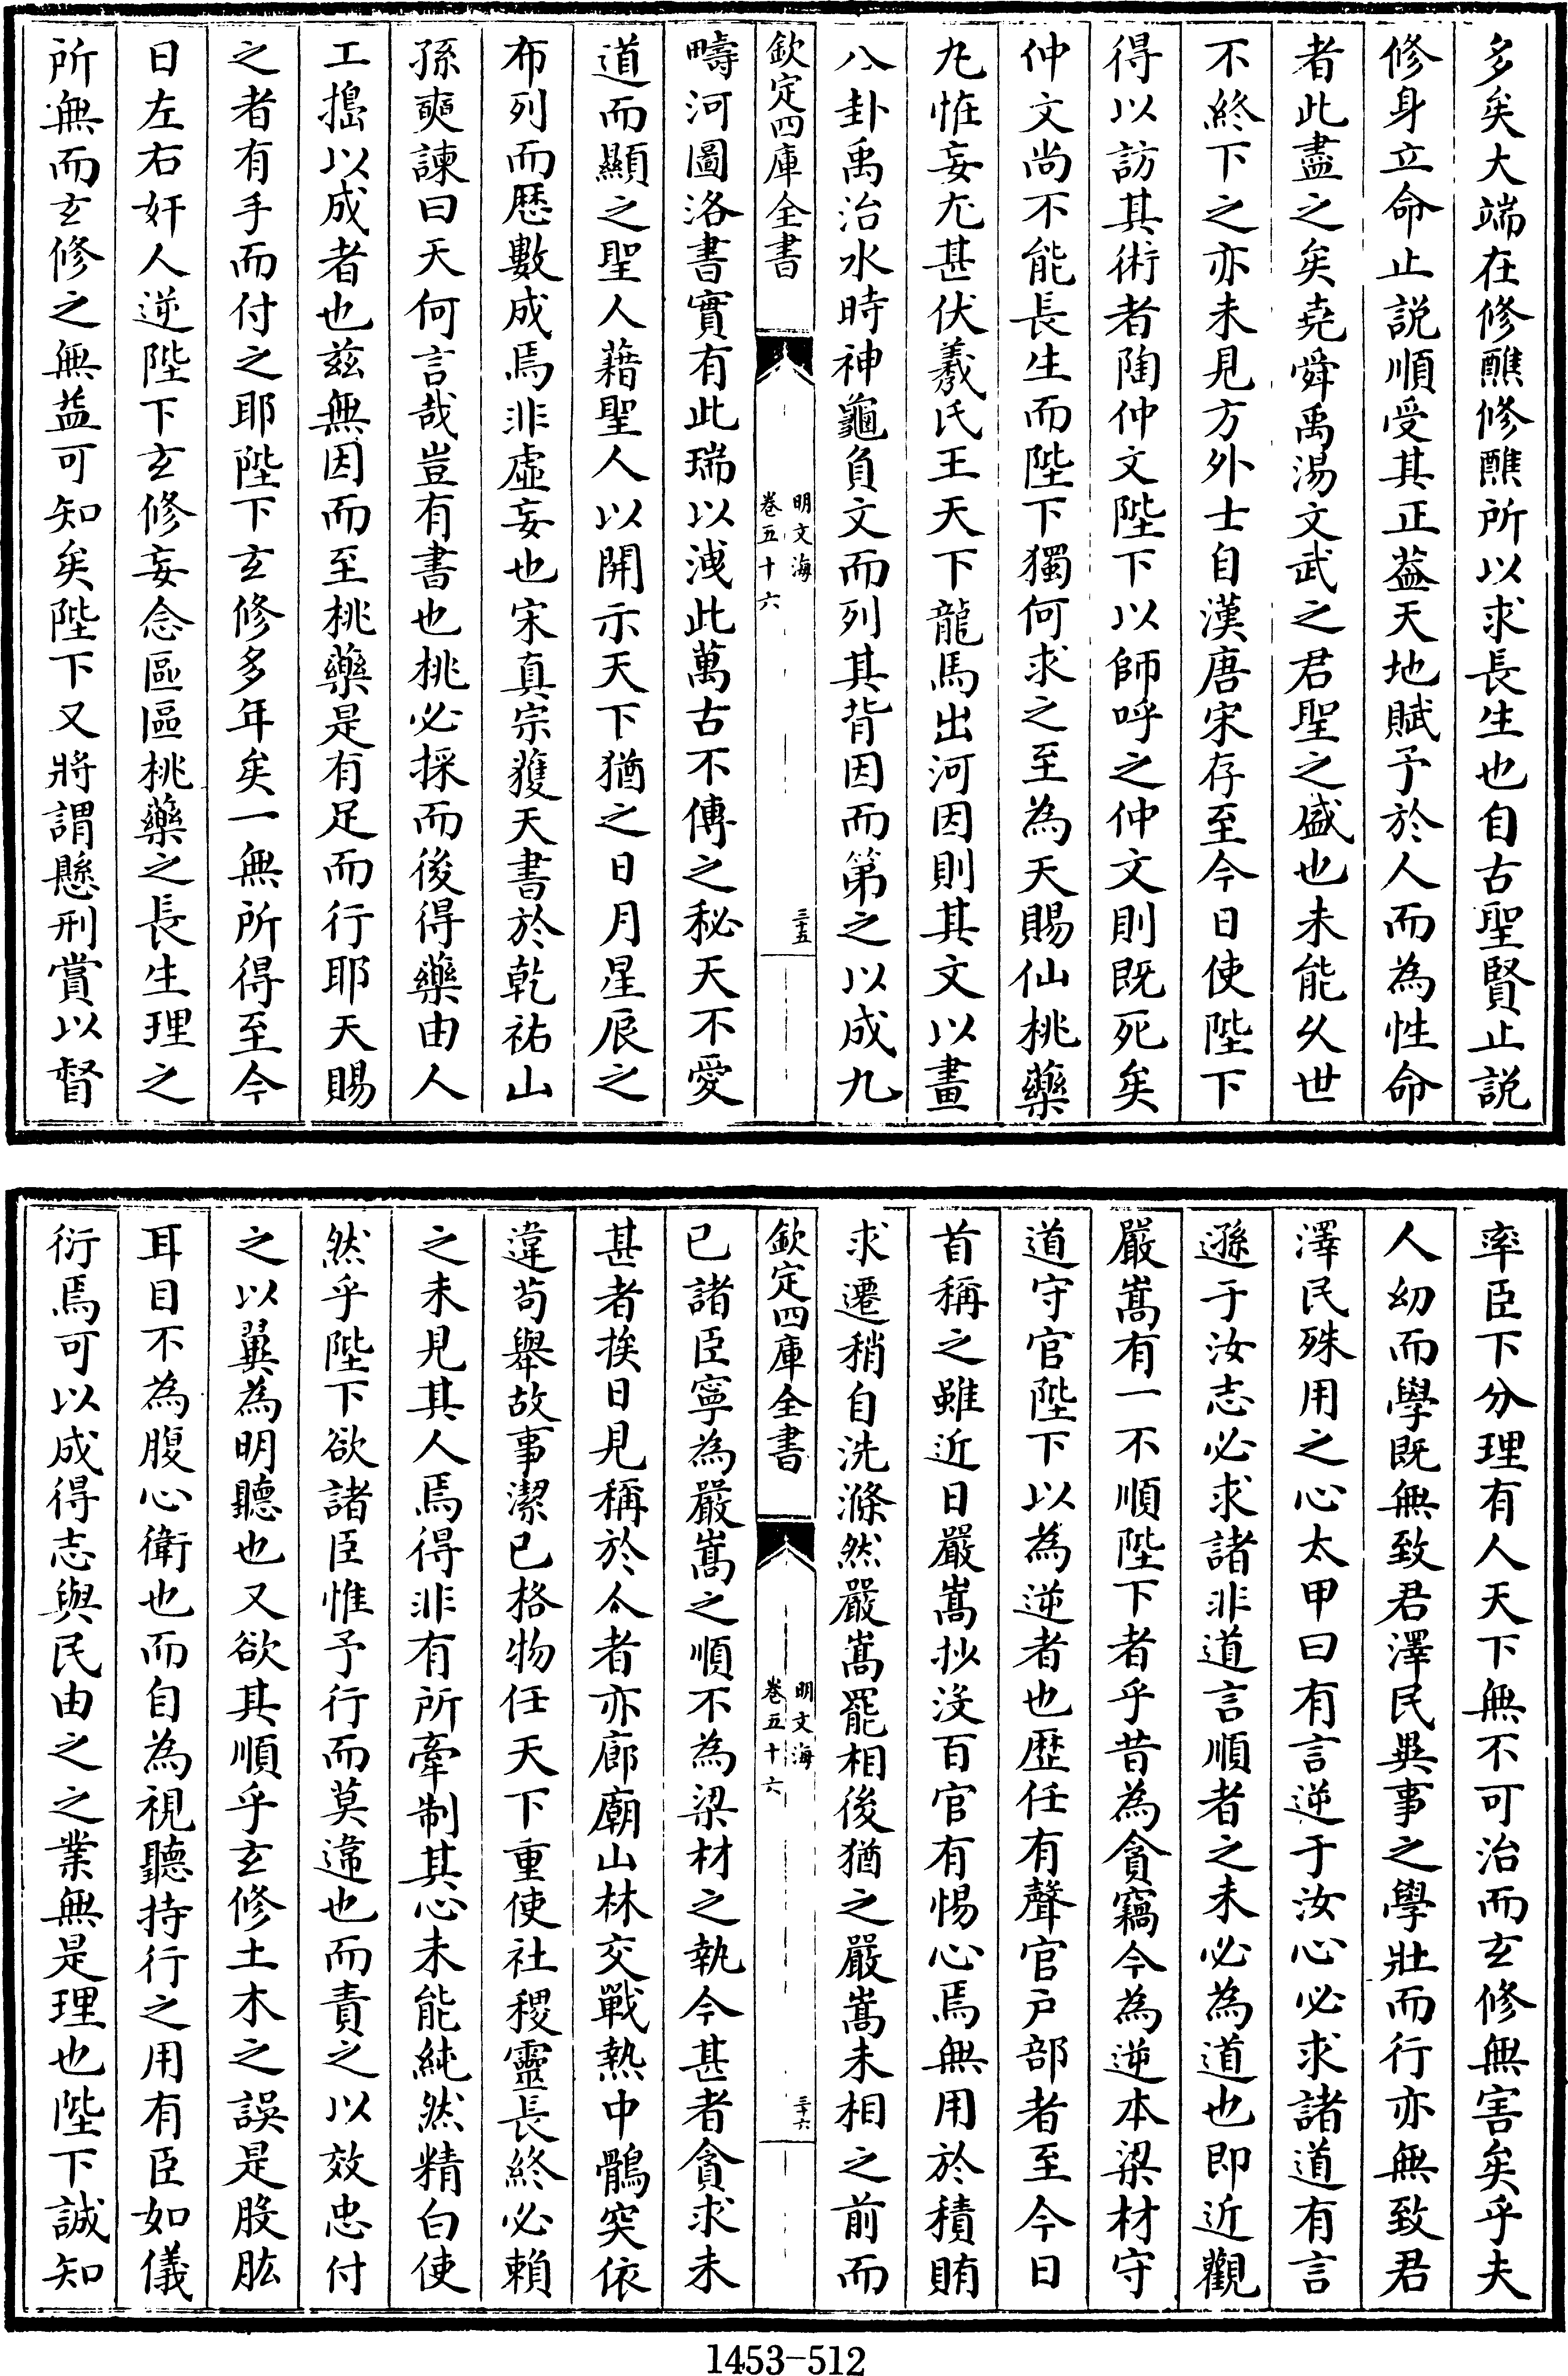 多矣大端在修醮修醮所以求長生也自古聖賢止説
修身立命止説順受其正葢天地賦予於人而為性命
者此盡之矣堯舜禹湯文武之君聖之盛也未能久世
不終下之亦未見方外士自漢唐宋存至今日使陛下
得以訪其術者陶仲文陛下以師呼之仲文則既死矣
仲文尚不能長生而陛下獨何求之至為天賜仙桃藥
丸恠妄尤甚伏羲氏王天下龍馬出河因則其文以畫
八卦禹治水時神龜負文而列其背因而第之以成九
欽定四庫全書
明文海
卷五十六
三十五
疇河圖洛書實有此瑞以洩此萬古不傳之秘天不愛
道而顯之聖人藉聖人以開示天下猶之日月星辰之
布列而厯數成焉非虛妄也宋真宗獲天書於乾祐山
孫奭諫曰天何言哉豈有書也桃必採而後得藥由人
工搗以成者也兹無因而至桃藥是有足而行耶天賜
之者有手而付之耶陛下玄修多年矣一無所得至今
日左右奸人逆陛下玄修妄念區區桃藥之長生理之
所無而玄修之無益可知矣陛下又將謂懸刑賞以督
率臣下分理有人天下無不可治而玄修無害矣乎夫
人幼而學既無致君澤民異事之學壯而行亦無致君
澤民殊用之心太甲曰有言逆于汝心必求諸道有言
遜于汝志必求諸非道言順者之未必為道也即近觀
嚴嵩有一不順陛下者乎昔為貪竊今為逆本梁材守
道守官陛下以為逆者也歴任有聲官戶部者至今日
首稱之雖近日嚴嵩抄沒百官有惕心焉無用於積賄
求遷稍自洗滌然嚴嵩罷相後猶之嚴嵩未相之前而
欽定四庫全書
明文海
卷五十六
三十六
已諸臣寧為嚴嵩之順不為梁材之執今甚者貪求未
甚者挨日見稱於人者亦廊廟山林交戰熱中鶻突依
違苟舉故事潔已格物任天下重使社稷靈長終必賴
之未見其人焉得非有所牽制其心未能純然精白使
然乎陛下欲諸臣惟予行而莫違也而責之以效忠付
之以翼為明聽也又欲其順乎玄修土木之誤是股肱
耳目不為腹心衛也而自為視聽持行之用有臣如儀
衍焉可以成得志與民由之之業無是理也陛下誠知
1453-512